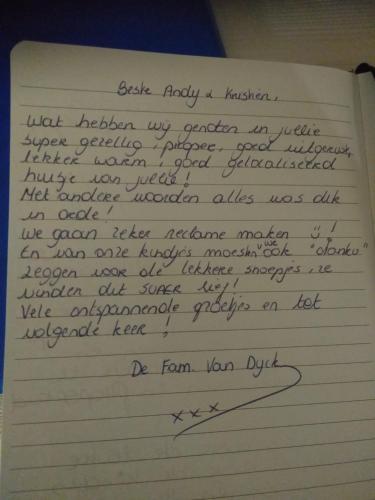 Beste Andy & Krishen,
Wat hebben wij genoten in jullie
super gezellig, proper, goed uitgerust,
lekker warm, goed gelocaliseerd
huisje van jullie!
Met andere woorden alles was dik
in orde!
We gaan zeker reclame maken ü!
En van onze kindjes moesten we ook "danku"
zeggen voor de lekkere snoepjes, ze
vinden dit SUPER lief!
Vele ontspannende groetjes en tot
volgende keer!
De Fam. Van Dyck
x x x